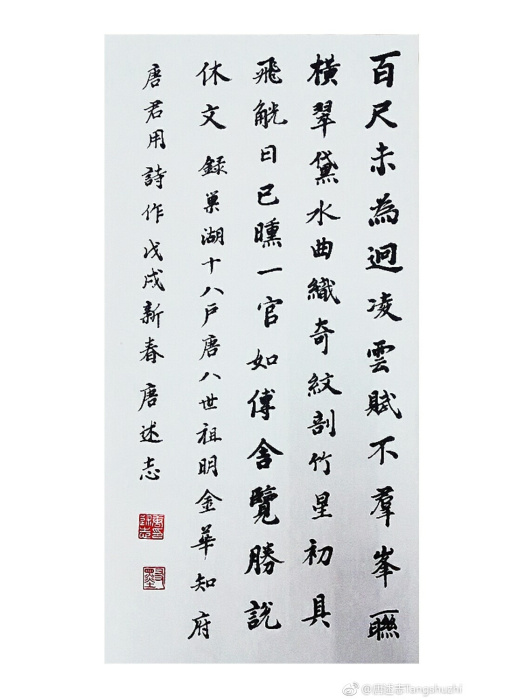 百尺未為迥凌雲賦不羣峯聯
橫翠黛水曲織奇紋剖竹星初具
飛觥日已曛一官如傳舍覽勝說
休文 錄巢湖十八戶唐八世祖明金華知府
唐君用詩作戊戌新春唐述志
@唐述志Tangshuzhi